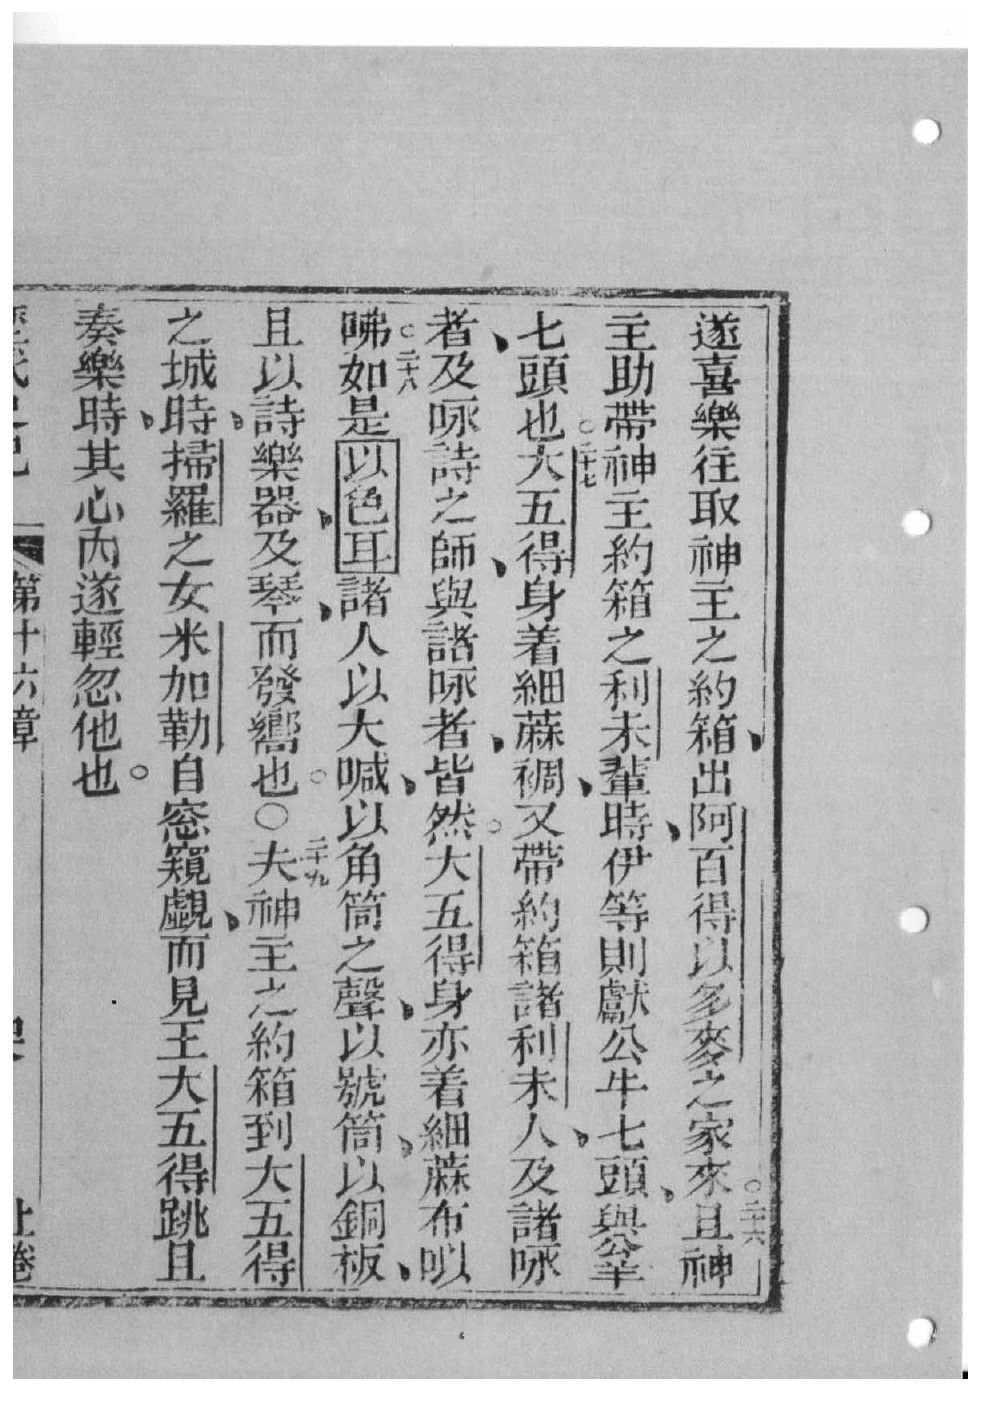 遂喜樂往取神主之約箱出阿百得以多麥之家來○二十六且神
主助帶神主約箱之利未輩時伊等則獻公牛七頭與公羊
七頭也○二十七大五得身着細蔴裯又帶約箱諸利未人及諸咏
者及咏詩之師與諸咏者皆然○大五得身亦着細蔴布㕥
咈○二十八如是以色耳諸人以大喊以角筒之聲以號筒以銅板
且以詩樂器及琴而發嚮也○○二十九夫神主之約箱到大五得
之城時掃羅之女米加勒自窓窺覷而見王大五得跳且
奏樂時其心內遂輕忽他也○
第十六章